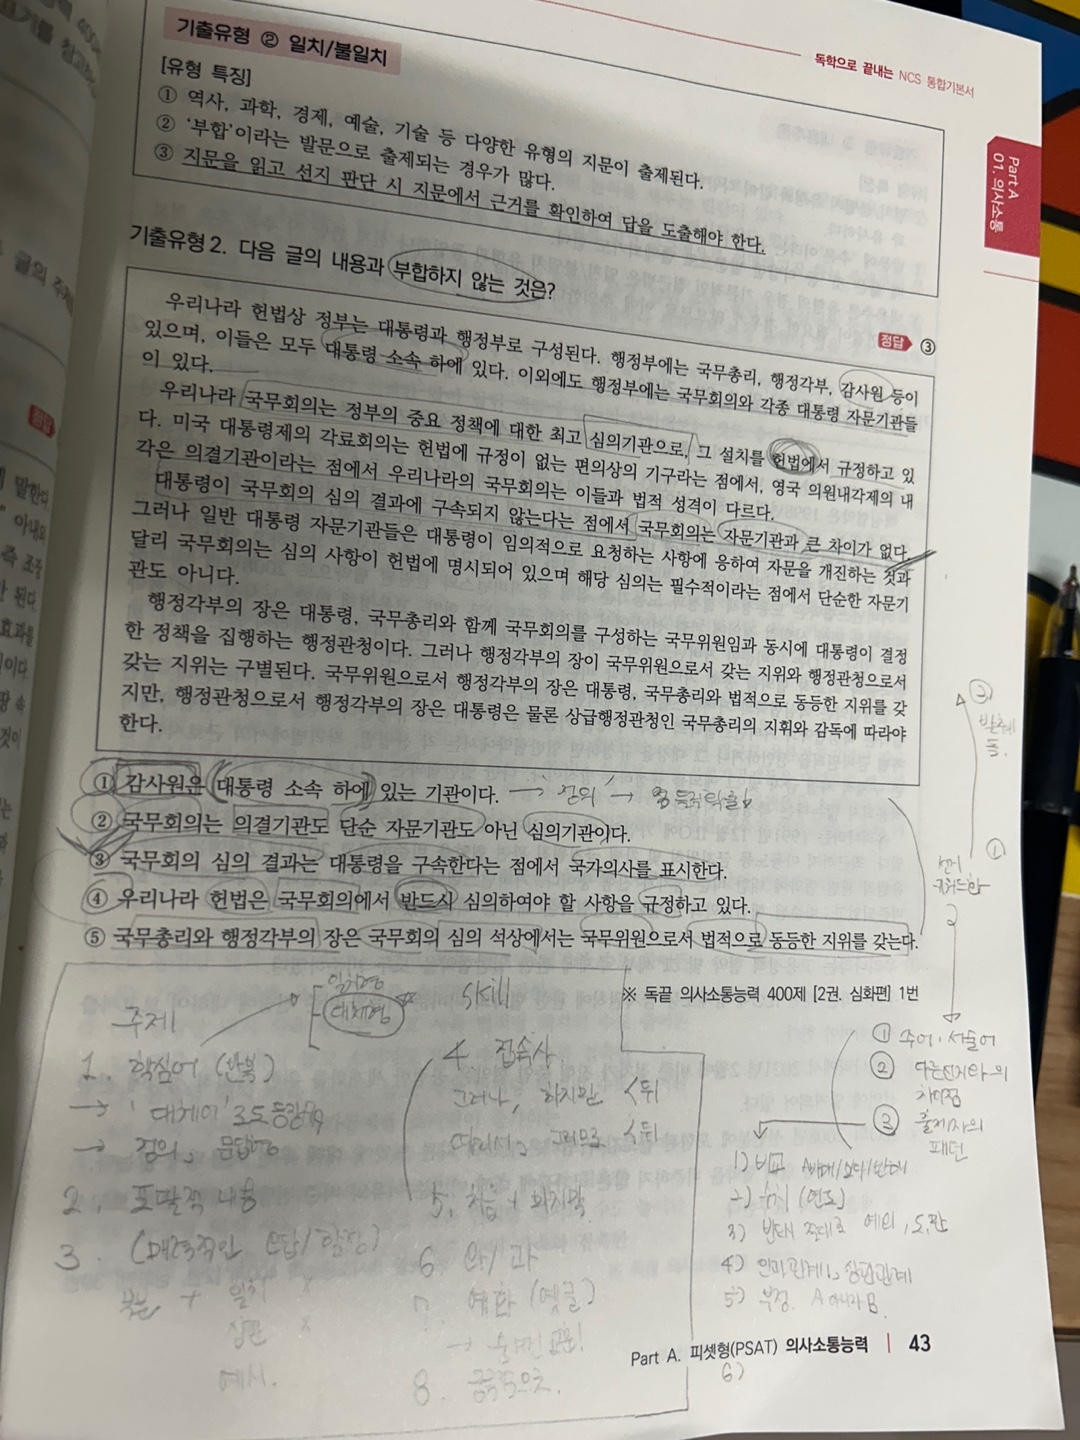 독학으로 끝내는 NCS 통합기본서
Part A
01. 의사소통
기출유형 ② 일치/불일치
[유형 특징]
① 역사, 과학, 경제, 예술, 기술 등 다양한 유형의 지문이 출제된다.
② '부합'이라는 발문으로 출제되는 경우가 많다.
③ 지문을 읽고 선지 판단 시 지문에서 근거를 확인하여 답을 도출해야 한다.
기출유형 2. 다음 글의 내용과 부합하지 않는 것은?
정답 ③
우리나라 헌법상 정부는 대통령과 행정부로 구성된다. 행정부에는 국무총리, 행정각부, 감사원 등이
있으며, 이들은 모두 대통령 소속 하에 있다. 이외에도 행정부에는 국무회의와 각종 대통령 자문기관들
이 있다.
우리나라 국무회의는 정부의 중요 정책에 대한 최고 심의기관으로, 그 설치를 헌법에서 규정하고 있
다. 미국 대통령제의 각료회의는 헌법에 규정이 없는 편의상의 기구라는 점에서, 영국 의원내각제의 내
각은 의결기관이라는 점에서 우리나라의 국무회의는 이들과 법적 성격이 다르다.
대통령이 국무회의 심의 결과에 구속되지 않는다는 점에서 국무회의는 자문기관과 큰 차이가 없다.
그러나 일반 대통령 자문기관들은 대통령이 임의적으로 요청하는 사항에 응하여 자문을 개진하는 것과
달리 국무회의는 심의 사항이 헌법에 명시되어 있으며 해당 심의는 필수적이라는 점에서 단순한 자문기
관도 아니다.
행정각부의 장은 대통령, 국무총리와 함께 국무회의를 구성하는 국무위원임과 동시에 대통령이 결정
한 정책을 집행하는 행정관청이다. 그러나 행정각부의 장이 국무위원으로서 갖는 지위와 행정관청으로서
갖는 지위는 구별된다. 국무위원으로서 행정각부의 장은 대통령, 국무총리와 법적으로 동등한 지위를 갖
지만, 행정관청으로서 행정각부의 장은 대통령은 물론 상급행정관청인 국무총리의 지휘와 감독에 따라야
한다.
① 감사원은 대통령 소속 하에 있는 기관이다. → 정의 →
② 국무회의는 의결기관도 단순 자문기관도 아닌 심의기관이다.
③ 국무회의 심의 결과는 대통령을 구속한다는 점에서 국가의사를 표시한다.
④ 우리나라 헌법은 국무회의에서 반드시 심의하여야 할 사항을 규정하고 있다.
⑤ 국무총리와 행정각부의 장은 국무회의 심의 석상에서는 국무위원으로서 법적으로 동등한 지위를 갖는다.
※ 독끝 의사소통능력 400제 [2권. 심화편] 1번
주제
일치형
대체형
skill
1. 핵심어 (반복)
→ '대체어'로도 등장
→ 정의, 문답형
2. 포괄적 내용
3. (매력적인 오답/함정)
+ 일치 x
상반 x
예시.
4 접속사
그러나, 하지만 < 뒤
따라서, 그러므로 < 뒤
5. 처음 + 마지막
6 와/과
8.
②
①
① 주어, 서술어
② 다른선지와의
차이점
③ 출제자의
패턴
1) 비교
2) 수치 (연도)
3) 반대
4) 인과관계, 상관관계
5) 부정. A 아니라 B
6)
Part A. 피셋형(PSAT) 의사소통능력 | 43